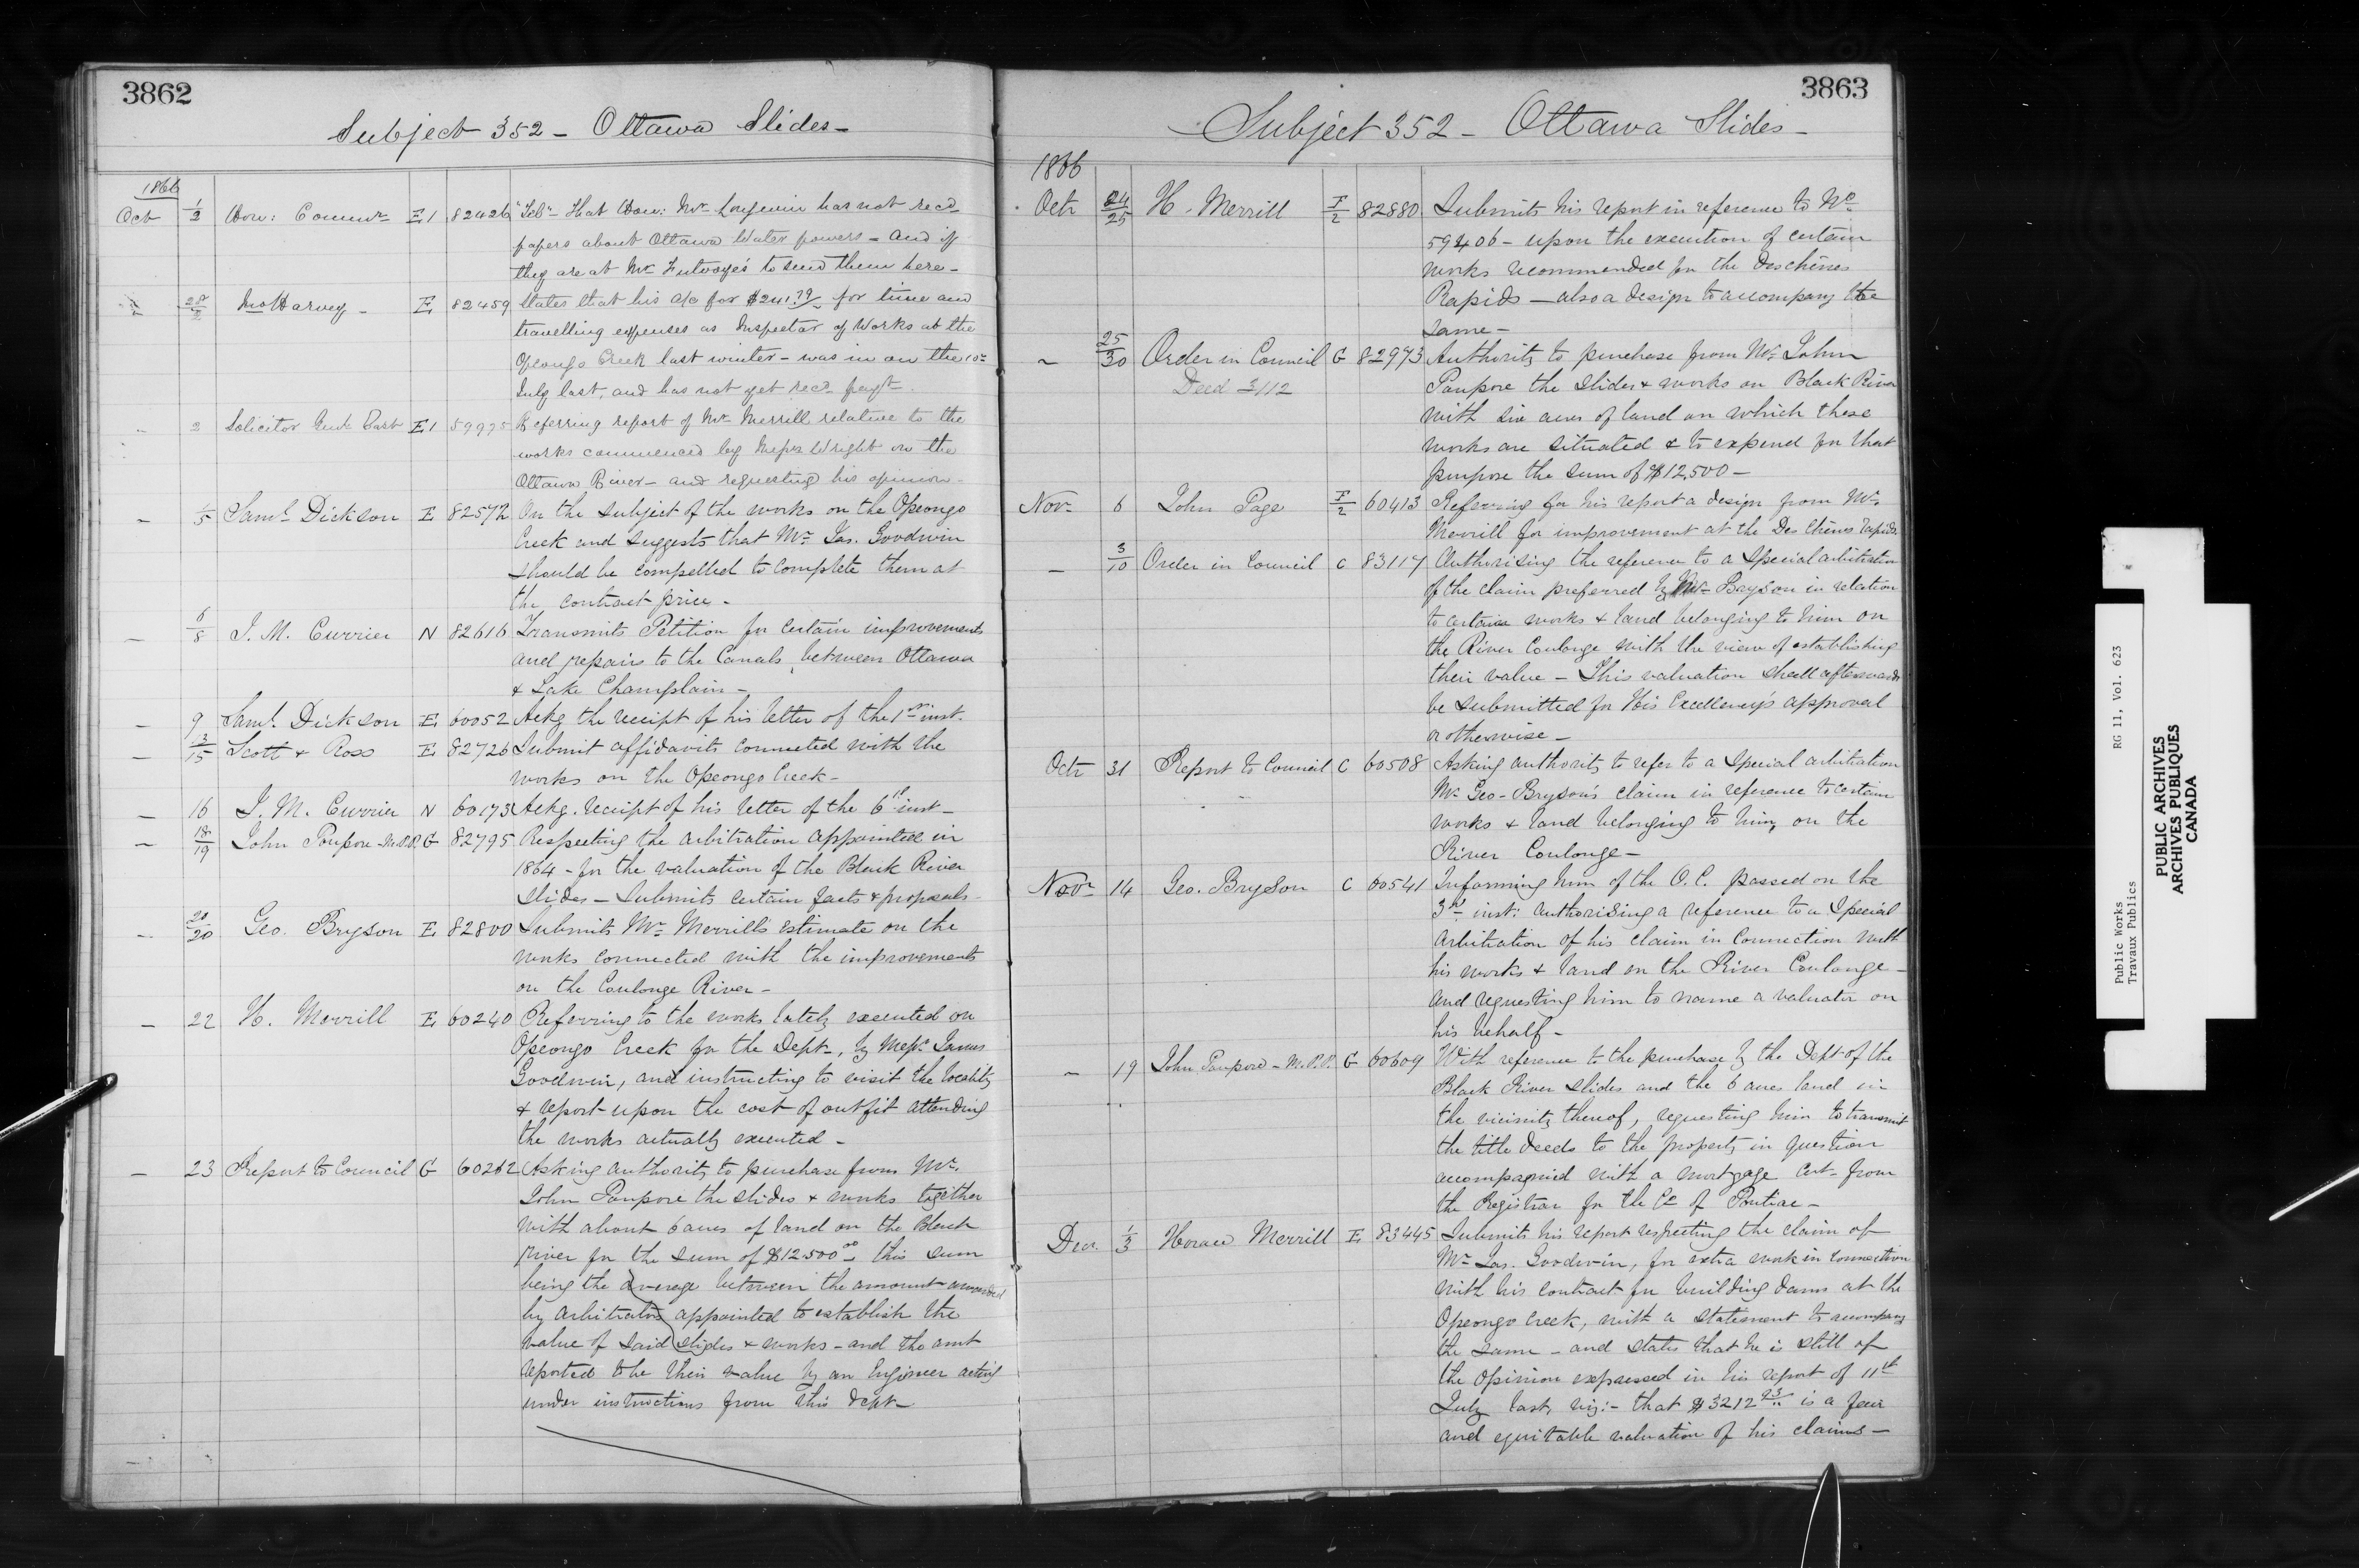 3862
Subject 352 - Ottawa Slides -
1866
Oct 1/2 Hon: Commr E1 82426 "Tel" That Hon: Mr Langevin has not recd
papers about Ottawa Water powers - and if
they are at Mr Trutvoye's to send them here -
Harvey - E 82459 States that his a/c for $241.79/ for time and
travelling expenses as Inspector of Works at the
Opeongo Creek last winter - was in on the 10th
July last, and has not yet recd payt -
2 Solicitor Genl East E1 59995 Referring report of Mr Merrill relative to the
works commenced by Messrs Wright on the
Ottawa River - and requesting his opinion -
- 1/5 Saml Dickson E 82572 On the subject of the works on the Opeongo
Creek and suggests that Mr Jas. Goodwin
should be compelled to complete them at
the contract price -
- 6/8 J. M. Currier N 82616 Transmits Petition for certain improvements
and repairs to the Canals, between Ottawa
& Lake Champlain -
- 9 Saml Dickson E 60052 Ackg the receipt of his letter of the 1st inst.
- 13/15 Scott & Ross E 82726 Submit affidavits connected with the
works on the Opeongo Creek -
- 16 J. M. Currier N 60173 Ackg. receipt of his letter of the 6th inst -
- 18/19 John Poupore M.P.P. G 82795 Respecting the arbitration appointed in
1864 - for the valuation of the Black River
Slides - Submits certain facts & proposals -
- 20/20 Geo. Bryson E 82800 Submits Mr Merrill's estimate on the
works connected with the improvements
on the Coulonge River -
- 22 H. Merrill E 60240 Referring to the works lately executed on
Opeongo Creek for the Dept -, by Messrs James
Goodwin, and instructing to visit the locality
& report upon the cost of outfit attending
the works actually executed -
- 23 Report to Council G 60262 Asking authority to purchase from Mr.
John Poupore the slides & works together
with about 6 acres of land on the Black
River for the sum of $12.500.00 this sum
being the average between the amount awarded
by arbitrators appointed to establish the
value of said slides & works - and the amt
reported to be their value by an Engineer acting
under instructions from this dept -
3863
Subject 352 - Ottawa Slides -
1866
Octr 24/25 H. Merrill F/2 82880 Submits his report in reference to No
59406 - upon the execution of certain
works recommended for the Deschênes
Rapids - also a design to accompany the
same -
~ 25/30 Order in Council G 82973 Authority to purchase from Mr John
Deed 3112 Poupore the slides & works on Black River
with six acres of land on which these
works are situated & to expend for that
purpose the sum of $12,500 -
Novr 6 John Page F/2 60413 Referring for his report a design from Mr
Merrill for improvement at the Des Chênes rapids.
- 3/10 Order in Council C 83117 Authorising the reference to a special arbitration
of the claim preferred by Mr Bryson in relation
to certain works & land belonging to him on
the River Coulonge with the view of establishing
their value - This valuation shall afterwards
be submitted for His Excellency's approval
or otherwise -
Octr 31 Report to Council C 60508 Asking authority to refer to a special arbitration
Mr Geo - Bryson's claim in reference to certain
works & land belonging to him, on the
River Coulonge -
Novr 14 Geo. Bryson C 60541 Informing him of the O.C. passed on the
3rd inst: authorising a reference to a special
arbitration of his claim in connection with
his works & land on the River Coulonge -
and requesting him to name a valuator on
his behalf -
~ 19 John Poupore - M.P.P. G 60609 With reference to the purchase by the Dept of the
Black River slides and the 6 acres land in
the vicinity thereof, requesting him to transmit
the title deeds to the property in question
accompanied with a mortgage cert - from
the Registrar for the Co of Pontiac -
Decr. 1/3 Horace Merrill E 83445 Submits his report respecting the claim of
Mr Jas. Goodwin, for extra work in connection
with his contract for building dams at the
Opeongo Creek, with a statement to accompany
the same - and states that he is still of
the opinion expressed in his report of 11th
July last, viz:- that $3212.23 is a fair
and equitable valuation of his claims -
Public Works
Travaux Publics
RG 11, Vol. 623
PUBLIC ARCHIVES
ARCHIVES PUBLIQUES
CANADA